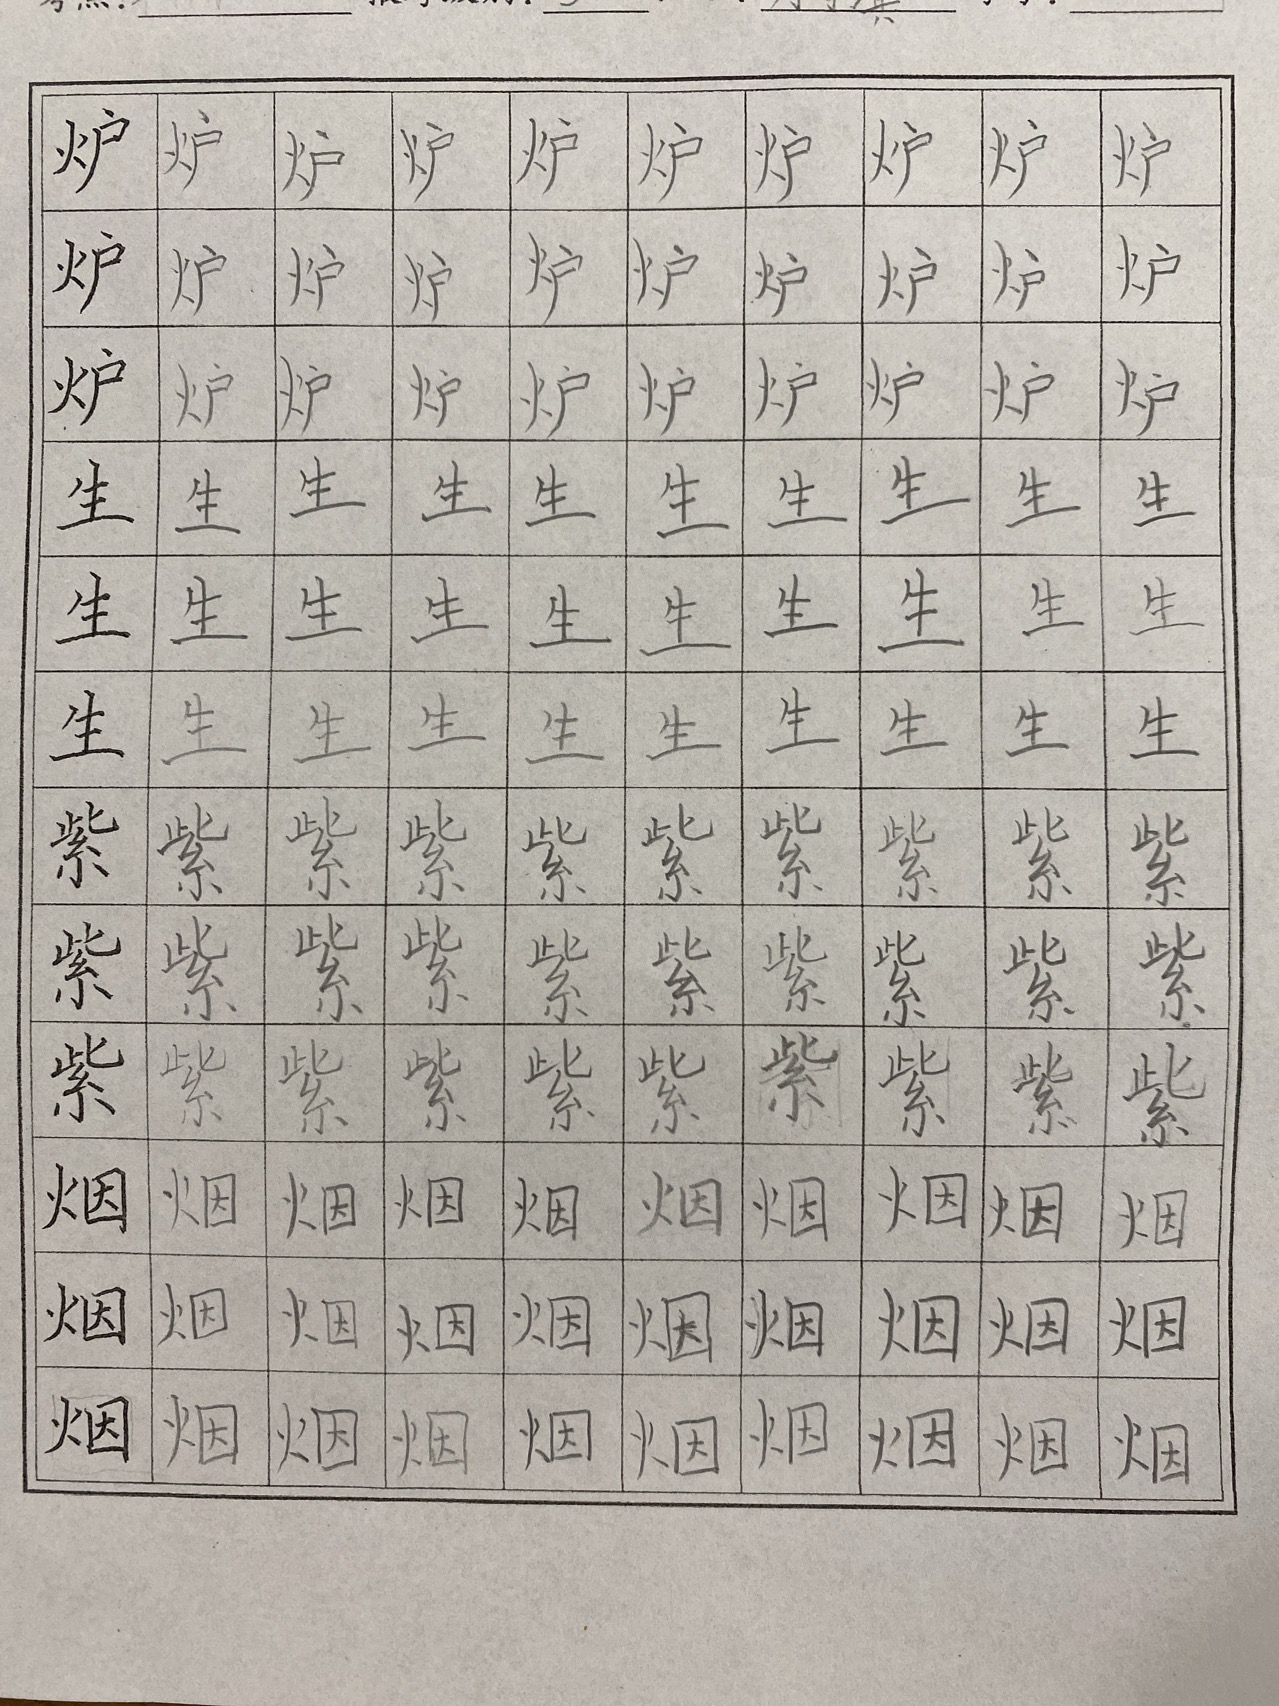 考点：
炉炉炉炉炉炉炉炉炉炉
炉炉炉炉炉炉炉炉炉炉
炉炉炉炉炉炉炉炉炉炉
生生生生生生生生生生
生生生生生生生生生生
生生生生生生生生生生
紫紫紫紫紫紫紫紫紫紫
紫紫紫紫紫紫紫紫紫紫
紫紫紫紫紫紫紫紫紫紫
烟烟烟烟烟烟烟烟烟烟
烟烟烟烟烟烟烟烟烟烟
烟烟烟烟烟烟烟烟烟烟